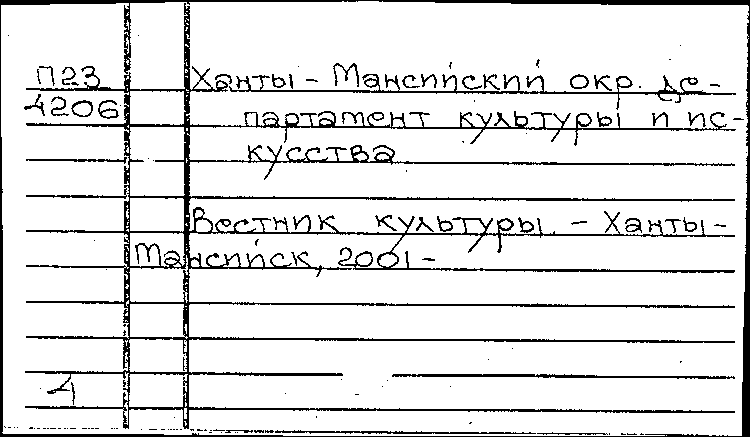 П23 Ханты-Мансийский окр. де-
4206 партамент культуры и ис-
кусства
Вестник культуры. - Ханты-
Мансийск, 2001-
4